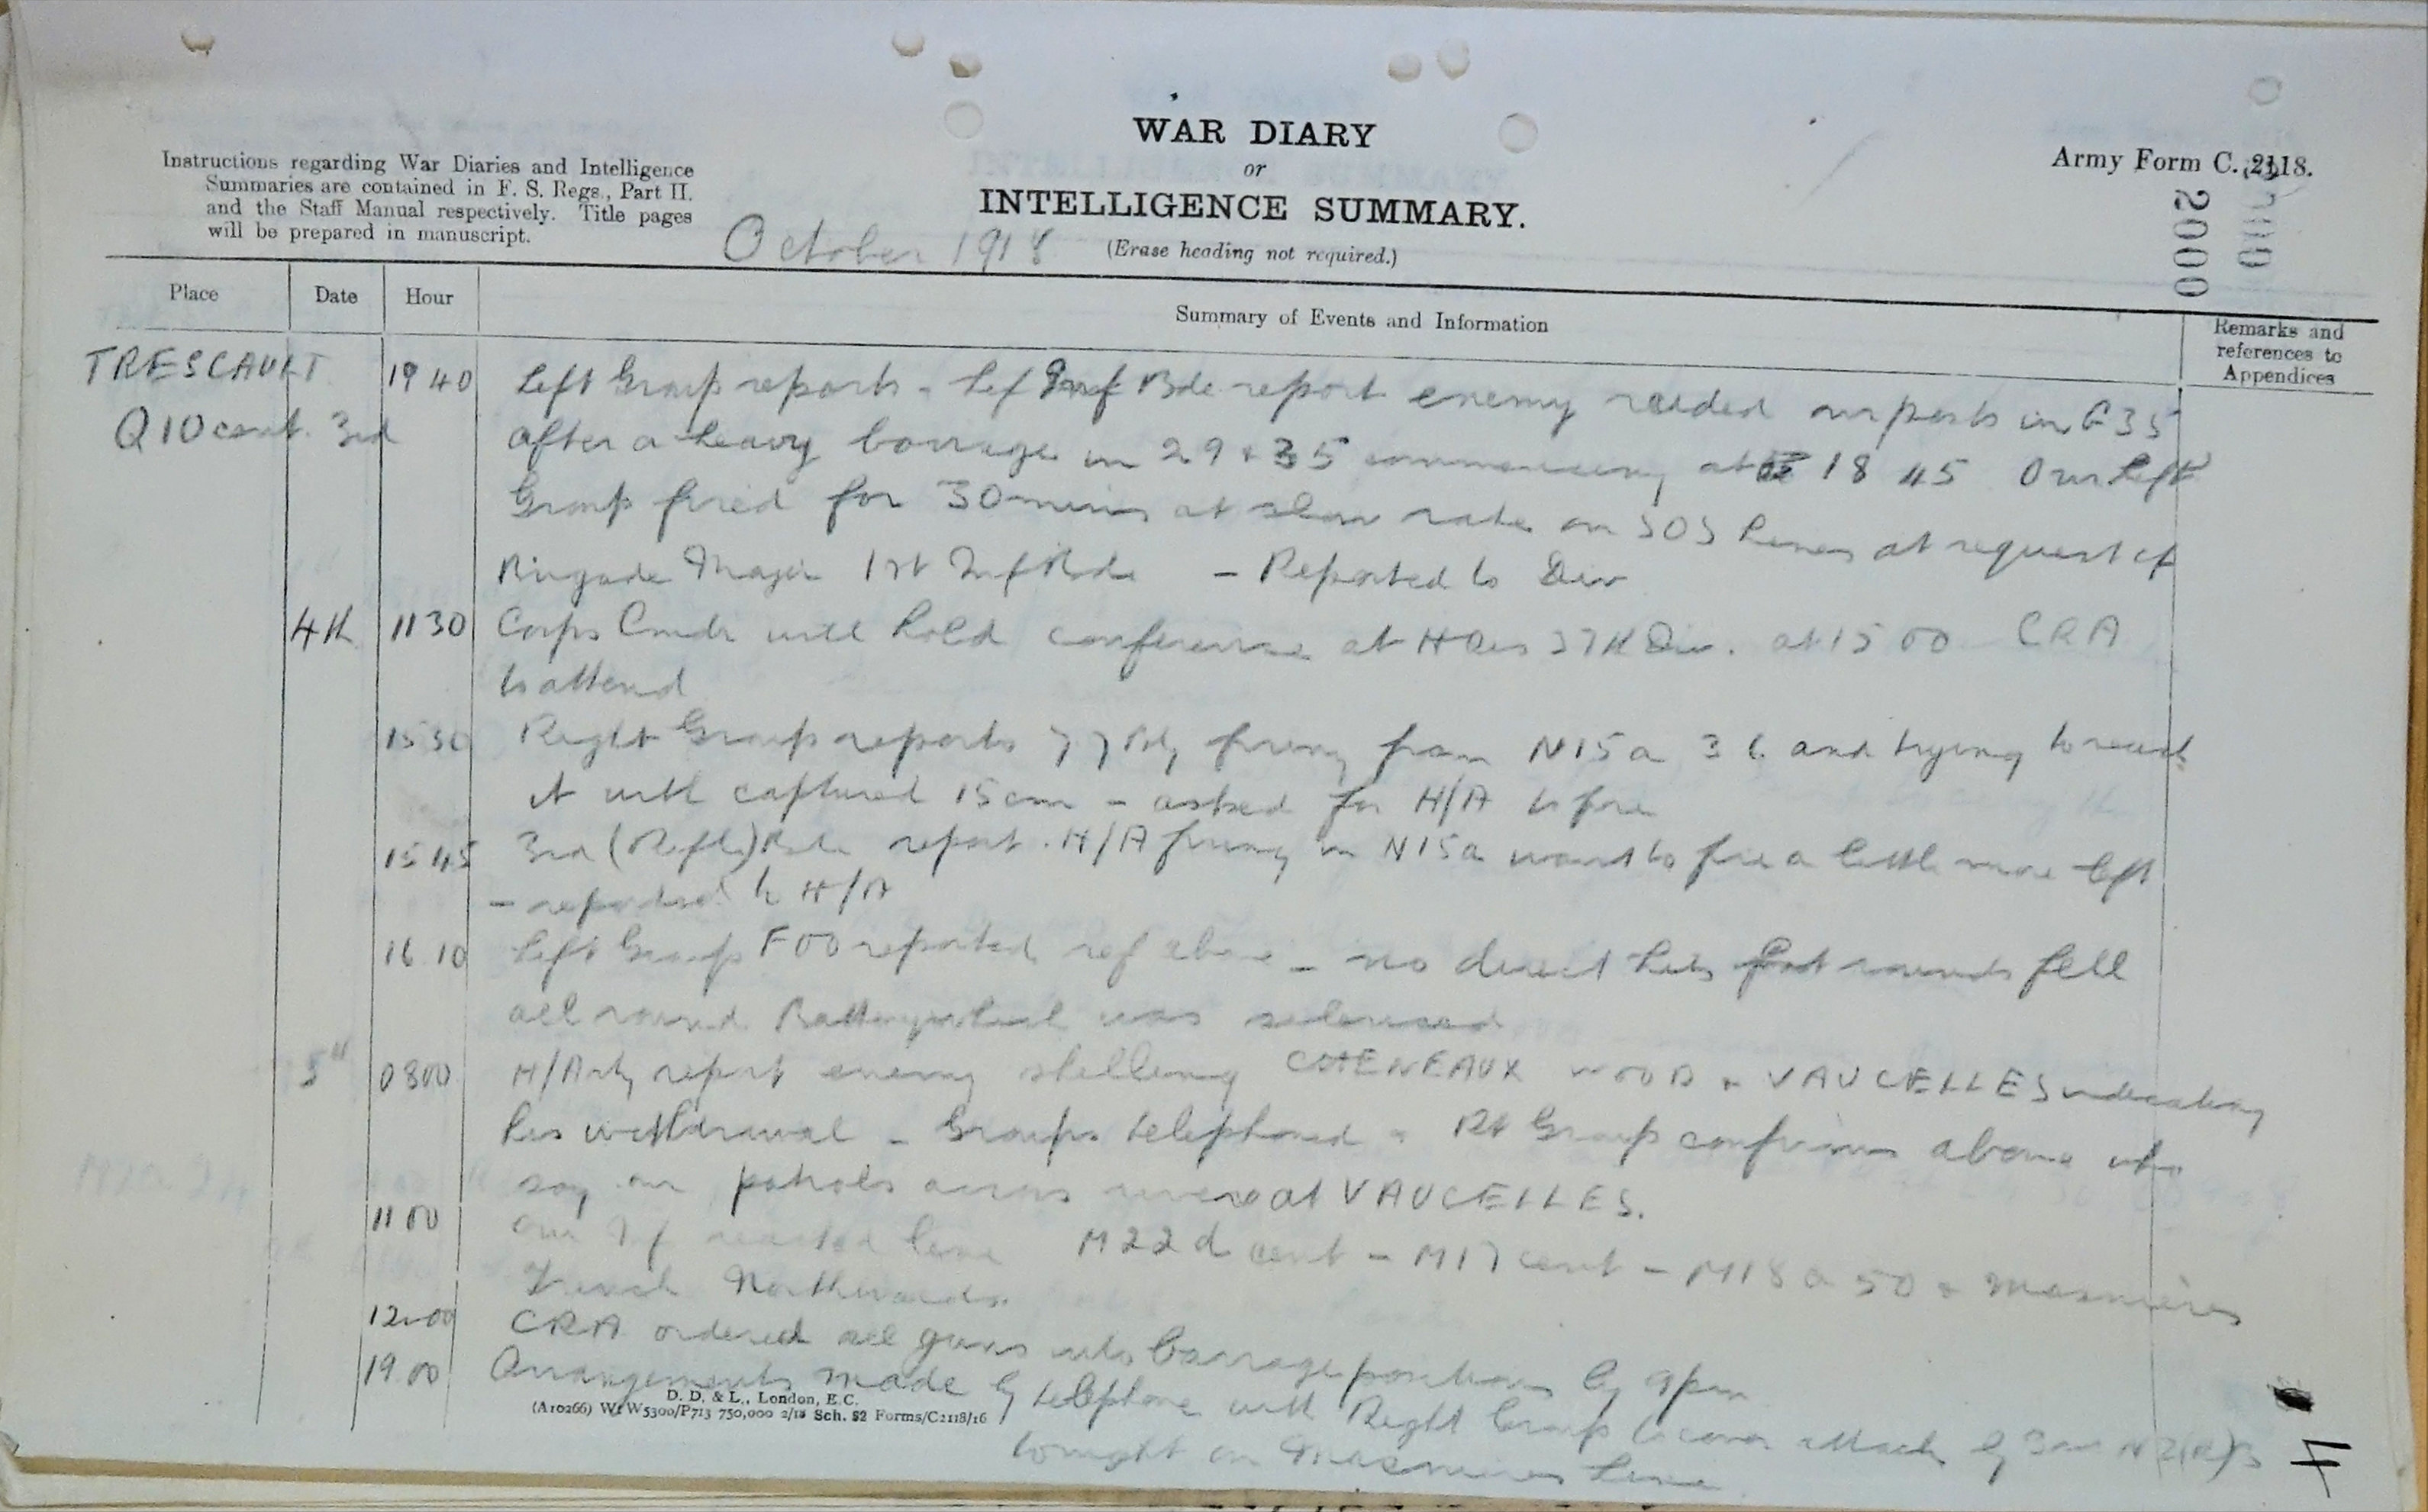 WAR DIARY
or
INTELLIGENCE SUMMARY.
(Erase heading not required.)
Army Form C. 2118.
2000
Instructions regarding War Diaries and Intelligence
Summaries are contained in F. S. Regs., Part II.
and the Staff Manual respectively. Title pages
will be prepared in manuscript.
October 1918
Place Date Hour Summary of Events and Information Remarks and references to Appendices
TRESCAULT 1940 Left Group reports - Lef Inf Bde report enemy raided our posts in G35
Q10 cent. 3rd after a heavy barrage in 29 + 35 commencing at 1845 Our Left
Group fired for 30 mins at slow rate on SOS lines at request of
Brigade Major 1st Inf Bde - Reported to Div
4th 1130 Corps Comdr will hold conference at HQrs 37th Div. at 1500 CRA
to attend
1530 Right Group reports 77 Bty firing from N15a 36 and trying to reach
it with captured 15cm - asked for H/A to fire
1545 3rd (Rifle) Bde report H/A firing in N15a want to fire a little more left
- reported to H/A
1610 Left Group FOO reported ref above - no direct hits but rounds fell
all round Battery which was silenced
5th 0800 H/Arty report enemy shelling CHENEAUX WOOD + VAUCELLES indicating
his withdrawal - Groups telephoned - Rt Group confirms above who
say our patrols across river at VAUCELLES.
1100 Our Inf reached line M22d cent - M17 cent - M18a 50 + Masnieres
Trench Northwards.
1200 CRA ordered all guns into barrage positions by 9pm
1900 Arrangements made by telephone with Right Group to cover attack by 3rd NZ(R)B
tonight on Masnieres Line
D. D. & L., London, E.C.
(A10266) Wt W5300/P713 750,000 2/18 Sch. 52 Forms/C2118/16
4